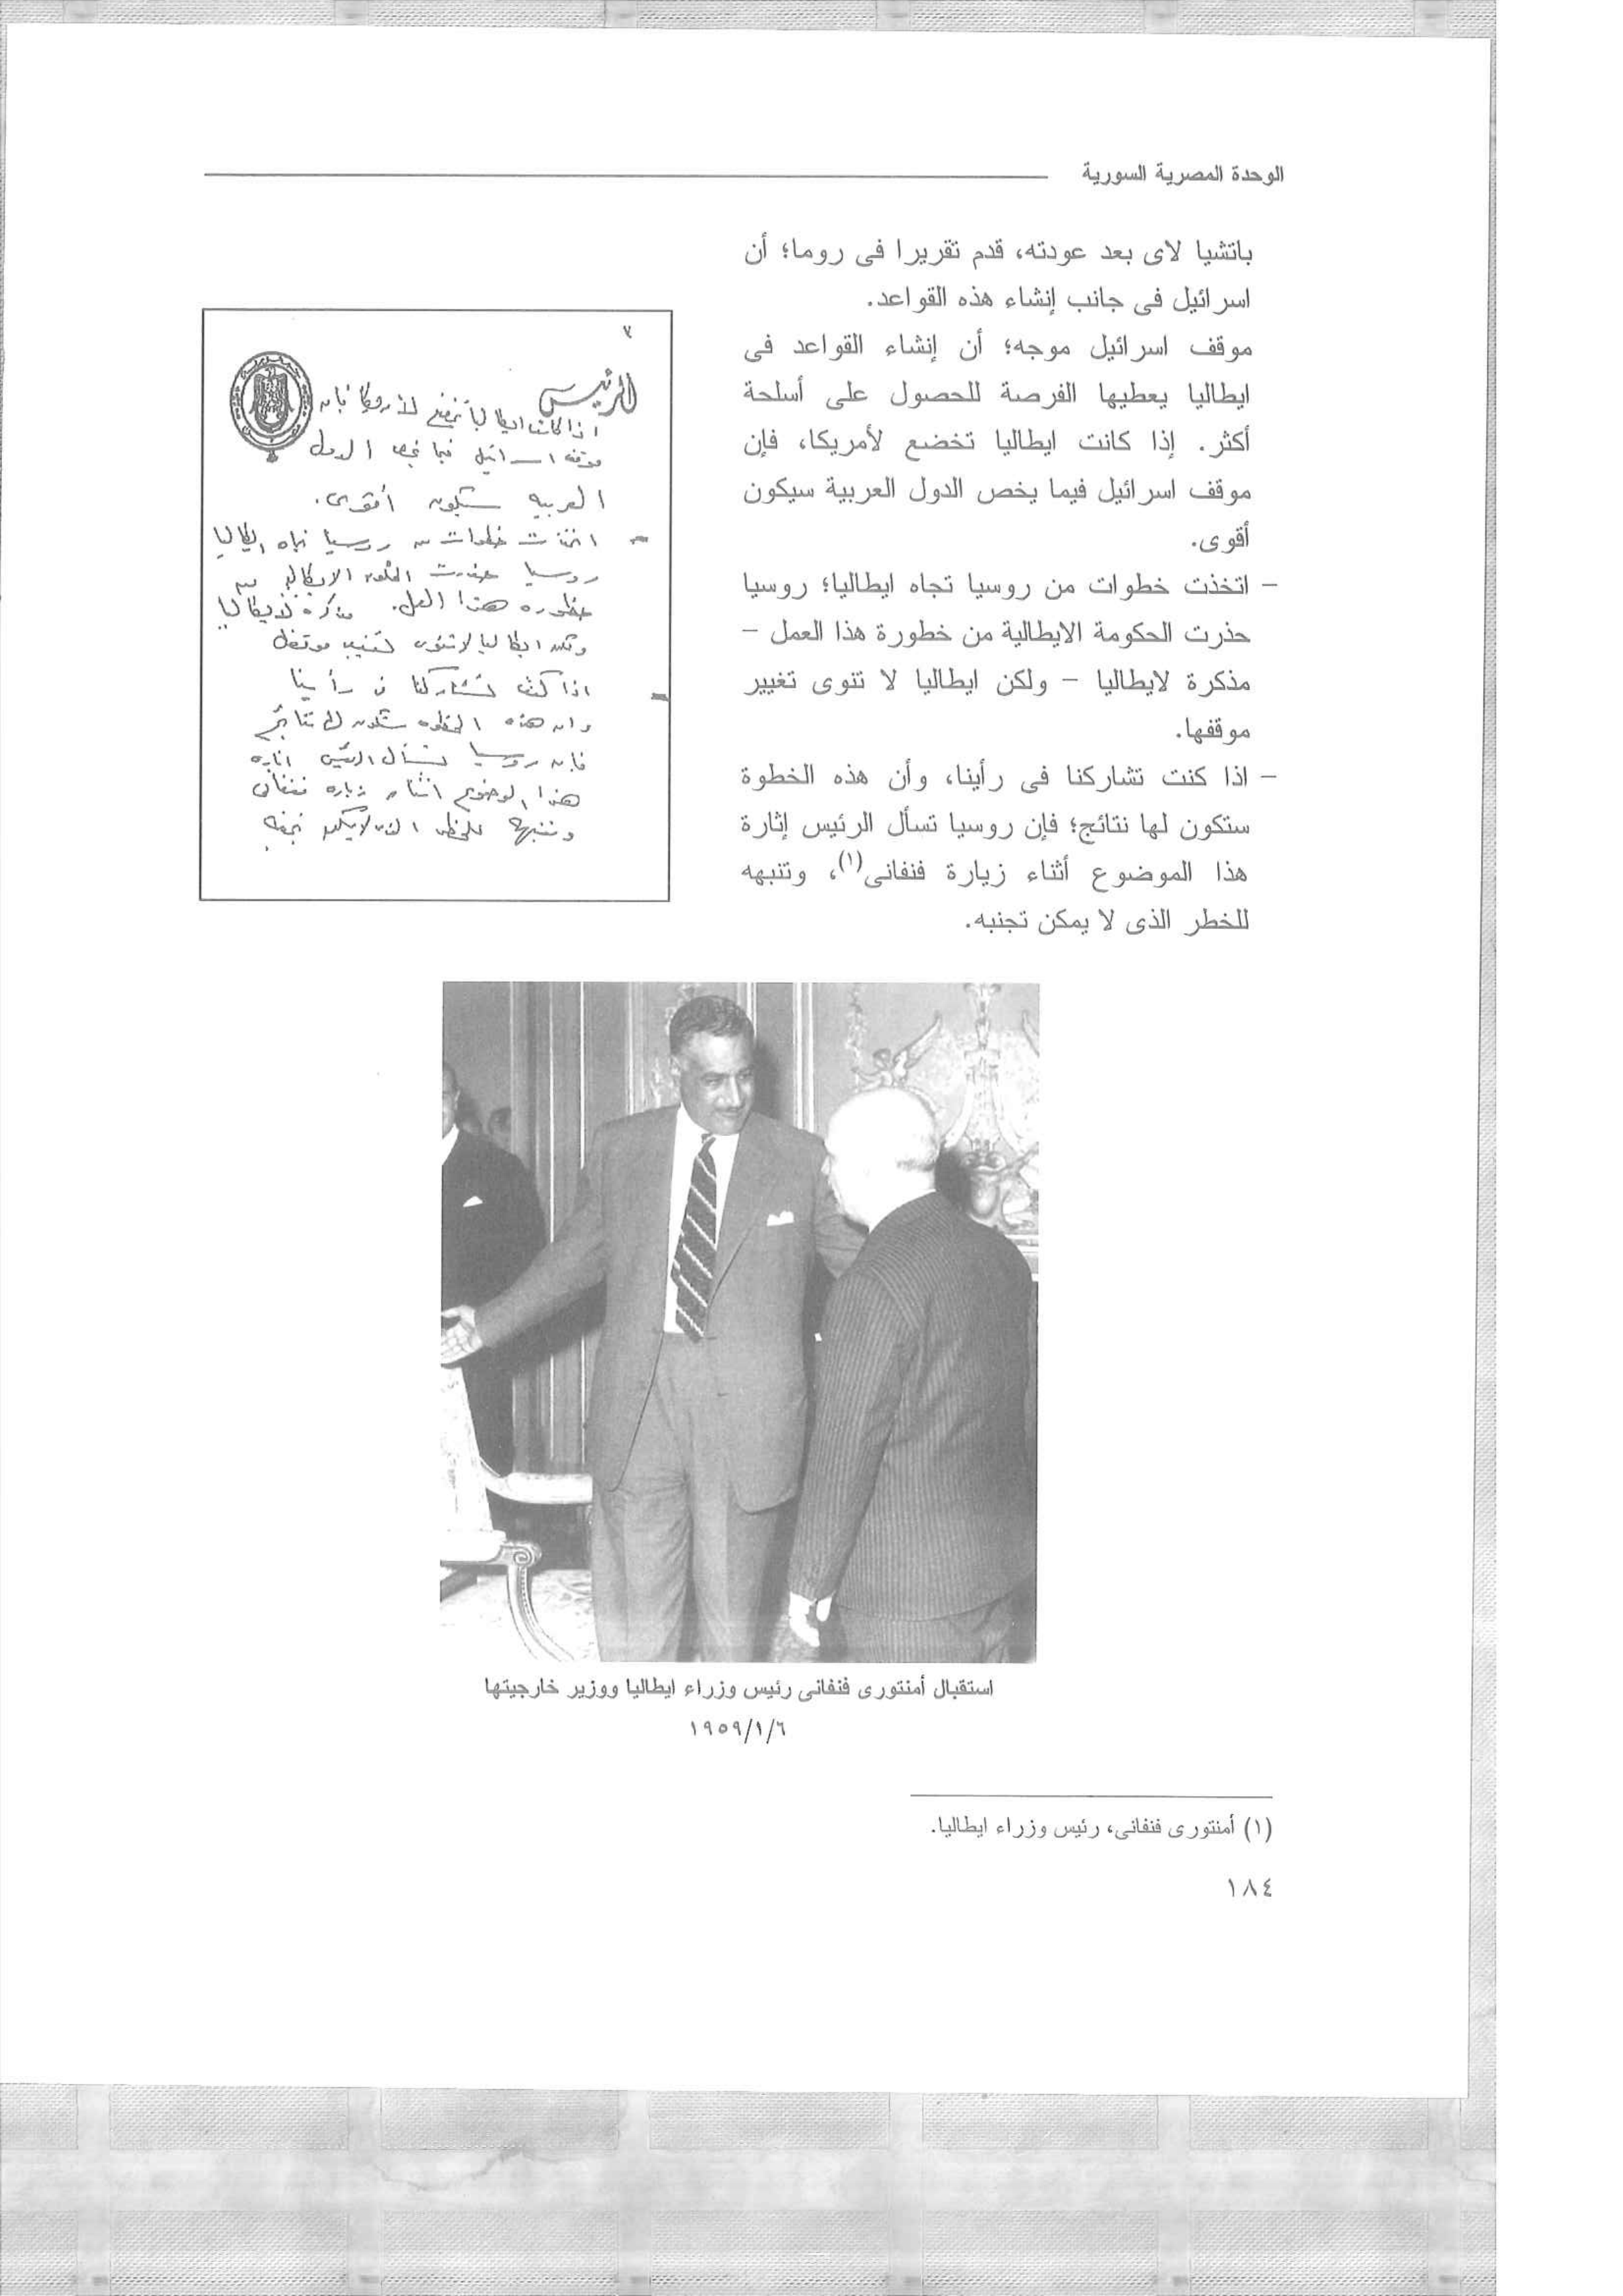 الوحدة المصرية السورية
باتشيا لاى بعد عودته، قدم تقريرا فى روما؛ أن
اسرائيل فى جانب إنشاء هذه القواعد.
موقف اسرائيل موجه؛ أن إنشاء القواعد فى
ايطاليا يعطيها الفرصة للحصول على أسلحة
أكثر. إذا كانت ايطاليا تخضع لأمريكا، فإن
موقف اسرائيل فيما يخص الدول العربية سيكون
أقوى.
– اتخذت خطوات من روسيا تجاه ايطاليا؛ روسيا
حذرت الحكومة الايطالية من خطورة هذا العمل –
مذكرة لايطاليا – ولكن ايطاليا لا تنوى تغيير
موقفها.
– اذا كنت تشاركنا فى رأينا، وأن هذه الخطوة
ستكون لها نتائج؛ فإن روسيا تسأل الرئيس إثارة
هذا الموضوع أثناء زيارة فنفانى(١)، وتنبهه
للخطر الذى لا يمكن تجنبه.
الرئيس
اذا كانت ايطاليا تخضع لأمريكا فان
موقف اسرائيل فيما يخص الدول
العربيه ستكون أقوى.
– اتخذت خطوات من روسيا تجاه ايطاليا
روسيا حذرت الحكومه الايطاليه من
خطوره هذا العمل. مذكره لايطاليا
ولكن ايطاليا لا تنوى تغيير موقفها
– اذا كنت تشاركنا فى رأينا
وان هذه الخطوه ستكون لها نتائج
فان روسيا تسأل الرئيس اثاره
هذا الموضوع اثناء زياره فنفانى
وتنبهه للخطر الذى لا يمكن تجنبه
استقبال أمنتورى فنفانى رئيس وزراء ايطاليا ووزير خارجيتها
١٩٥٩/١/٦
(١) أمنتورى فنفانى، رئيس وزراء ايطاليا.
١٨٤